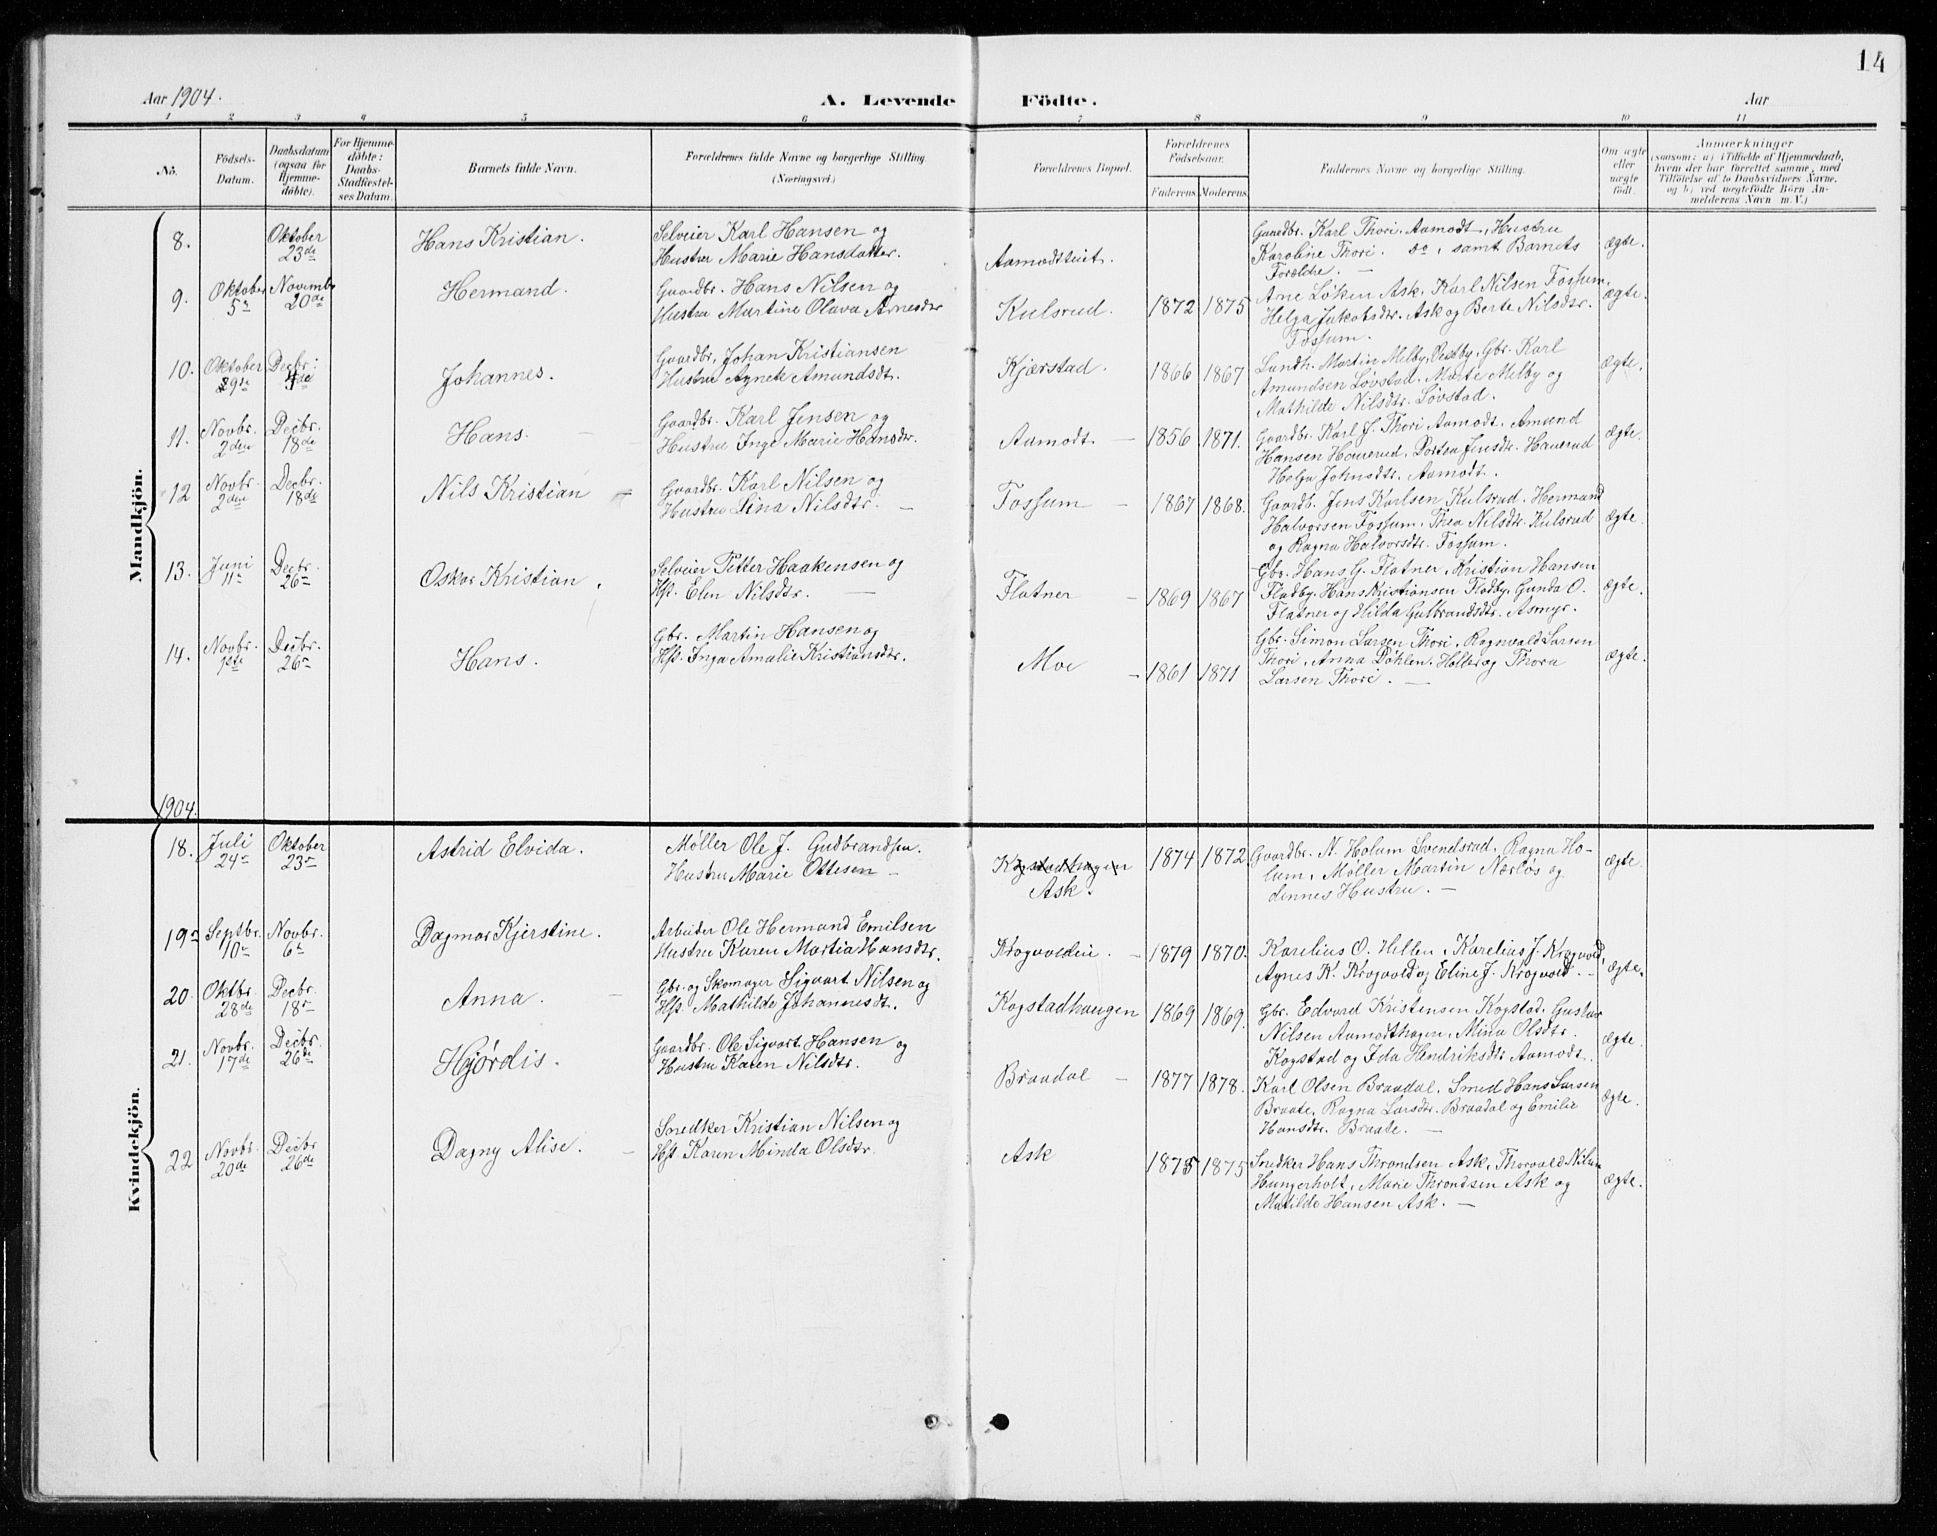 14
Aar 1904.
A. Levende Födte.
Aar
1 2 3 4 5 6 7 8 9 10 11
No.
Födsels-
Datum.
Daabsdatum
(ogsaa for
Hjemme-
döbte).
For Hjemme-
döbte:
Daabs-
Stadfæstel-
ses Datum.
Barnets fulde Navn.
Forældrenes fulde Navne og borgerlige Stilling
(Næringsvei.)
Forældrenes Bopæl.
Forældrenes
Födselsaar.
Faderens. Moderens.
Faddernes Navne og borgerlige Stilling.
Om ægte
eller
uægte
födt.
Anmærkninger
(saasom: a) i Tilfælde af Hjemmedaab,
hvem der har forrettet samme, med
Tilföielse af to Daabsvidners Navne,
og b) ved uægtefödte Börn An-
melderens Navn m. V.)
Mandkjön.
8.
Oktober
23de
Hans Kristian.
Selveier Karl Hansen og
Hustru Marie Hansdatter.
Aamodteiet.
Gaardbr. Karl Thori, Aamodt, Hustru
Karoline Thori. do, samt Barnets
Forældre. —
ægte.
9.
Oktober
5te
Novembr
20de
Hermand.
Gaardbr. Hans Nilsen og
Hustru Martine Olava Arnesdtr
Kulsrud.
1872 1875
Arne Løken Ask, Karl Nilsen Fossum,
Helga Jakobsdtr. Ask og Berte Nilsdtr.
Fossum.
ægte.
10.
Oktober
29de
Decbr:
4de
Johannes.
Gaardbr, Johan Kristiansen
Hustru Agnete Amundsdt.
Kjærstad.
1866 1867
Landh. Martin Melby, Gbr. Karl
Amundsen Løvstad, Marte Melby og
Mathilde Nilsdtr. Løvstad.
ægte,
11.
Novbr.
2den
Decbr.
18de
Hans.
Gaardbr. Karl Jensen og
Hustru Inge Marie Hansdr.
Aamodt
1856 1871.
Gaardbr. Karl J. Thori Aamodt. Amund
Hansen Hauerud, Dortea Jensdtr. Hauerud
Helga Johnsdtr. Aamodt.
ægte.
12
Novbr.
2den
Decbr.
18de
Nils Kristian
Gaardbr. Karl Nilsen og
Hustru Lina Nilsdtr.
Fossum
1867 1868.
Gaardb. Jens Karlsen Kulsrud. Hermand
Halvorsen Fossum, Thea Nilsdtr. Kulsrud
og Ragna Halvorsdtr. Fossum.
ægte.
13.
Juni
11te
Decbr.
26de
Oskar Kristian.
Selveier Petter Haakensen og
Hst. Elen Nilsdtr.
Flatner
1869 1867
Gbr. Hans G. Flatner, Kristian Hansen
Fladby, Hans Kristiansen Fladby, Gunda O.
Flatner og Hilda Gulbrandsdtr. Asmyr.
ægte.
14.
Novbr.
1ste
Decbr.
26de
Hans.
Gbr. Martin Hansen og
Hst. Inga Amalie Kristiansdtr.
Moe
1861 1871
Gbr. Simon Larsen Thori, Ragnvald Larsen
Thori, Anna Døhlen, Holter og Thora
Larsen Thori. —
ægte.
1904.
Kvindekjön.
18.
Juli
24de
Oktober
23de
Astrid Elvida.
Møller Ole J. Gudbrandsen.
Hustru Marie Ottesen
Kogstadhagen
Ask.
1874 1872
Gaardbr. N. Holum Svendsrud, Ragna Ho-
lum, Møller Martin Nærløs og
dennes Hustru. —
ægte.
19de
Septbr.
10de
Novbr.
6te
Dagmar Kjerstine.
Arbeider Ole Hermand Emilsen
Hustru Karen Martia Hansdtr.
Krogvolden.
1879 1870.
Karelius O. Hellen, Karelius J. Krogvold,
Agnes K. Krogvold og Eline J. Krogvold. —
ægte.
20.
Oktbr.
28de
Decbr.
18de
Anna.
Gbr. og Skomager Sigvart Nilsen og
Hst. Mathilde Johannesdt.
Kogstadhaugen
1869 1869.
Gbr. Edvard Kristensen Kogstad, Gustav
Nilsen Aamodthagen, Mina Olsdtr.
Kogstad og Ida Hendriksdtr Aamodt.
ægte.
21.
Novbr.
17de
Decbr.
26de
Hjørdis.
Gaardbr. Ole Sigvart Hansen og
Hustru Karen Nilsdtr.
Braadal
1877 1878.
Karl Olsen Braadal, Smed Hans Larsen
Braate, Ragna Larsdtr. Braadal og Emilie
Hansdtr. Braate. —
ægte.
22
Novbr.
20de
Decbr
26de
Dagny Alise.
Snedker Kristian Nilsen og
Hst. Karen Minda Olsdtr.
Ask
1875 1875
Snedker Hans Throndsen Ask, Thorvald Nilsen
Hungerholt, Marie Throndsen Ask og
Matilde Hansen Ask. —
ægte.